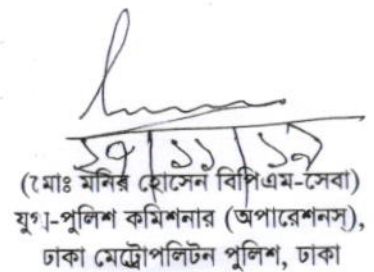 ২৭|১১|১৯
(মোঃ মনির হোসেন বিপিএম-সেবা)
যুগ্ম-পুলিশ কমিশনার (অপারেশনস্),
ঢাকা মেট্রোপলিটন পুলিশ, ঢাকা